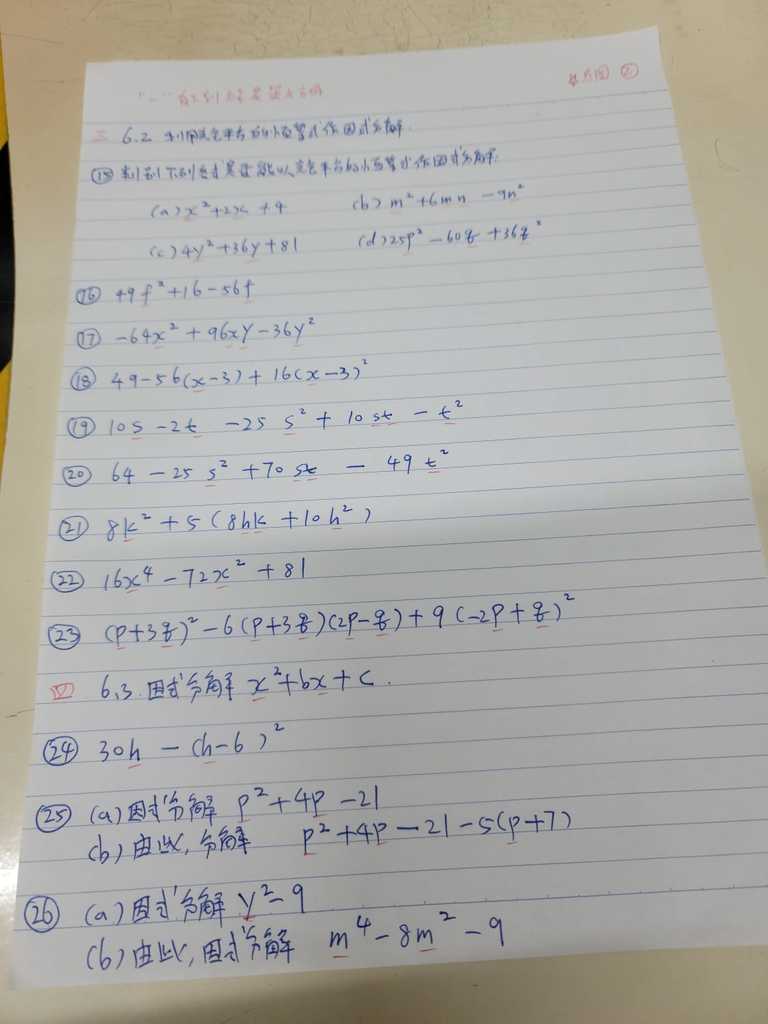 三 6.2 利用完全平方的恒等式作因式分解.
⑮ 判別下列各式是否能以完全平方的恒等式作因式分解.
(a) x²+2x+4 (b) m²+6mn-9n²
(c) 4y²+36y+81 (d) 25p²-60q+36q²
⑯ 49f²+16-56f
⑰ -64x²+96xy-36y²
⑱ 49-56(x-3)+16(x-3)²
⑲ 10s-2t-25s²+10st-t²
⑳ 64-25s²+70st-49t²
㉑ 8k²+5(8hk+10h²)
㉒ 16x⁴-72x²+81
㉓ (p+3q)²-6(p+3q)(2p-q)+9(-2p+q)²
四 6.3 因式分解 x²+bx+c.
㉔ 30h-(h-6)²
㉕ (a) 因式分解 p²+4p-21
(b) 由此, 分解 p²+4p-21-5(p+7)
㉖ (a) 因式分解 y²-9
(b) 由此, 因式分解 m⁴-8m²-9